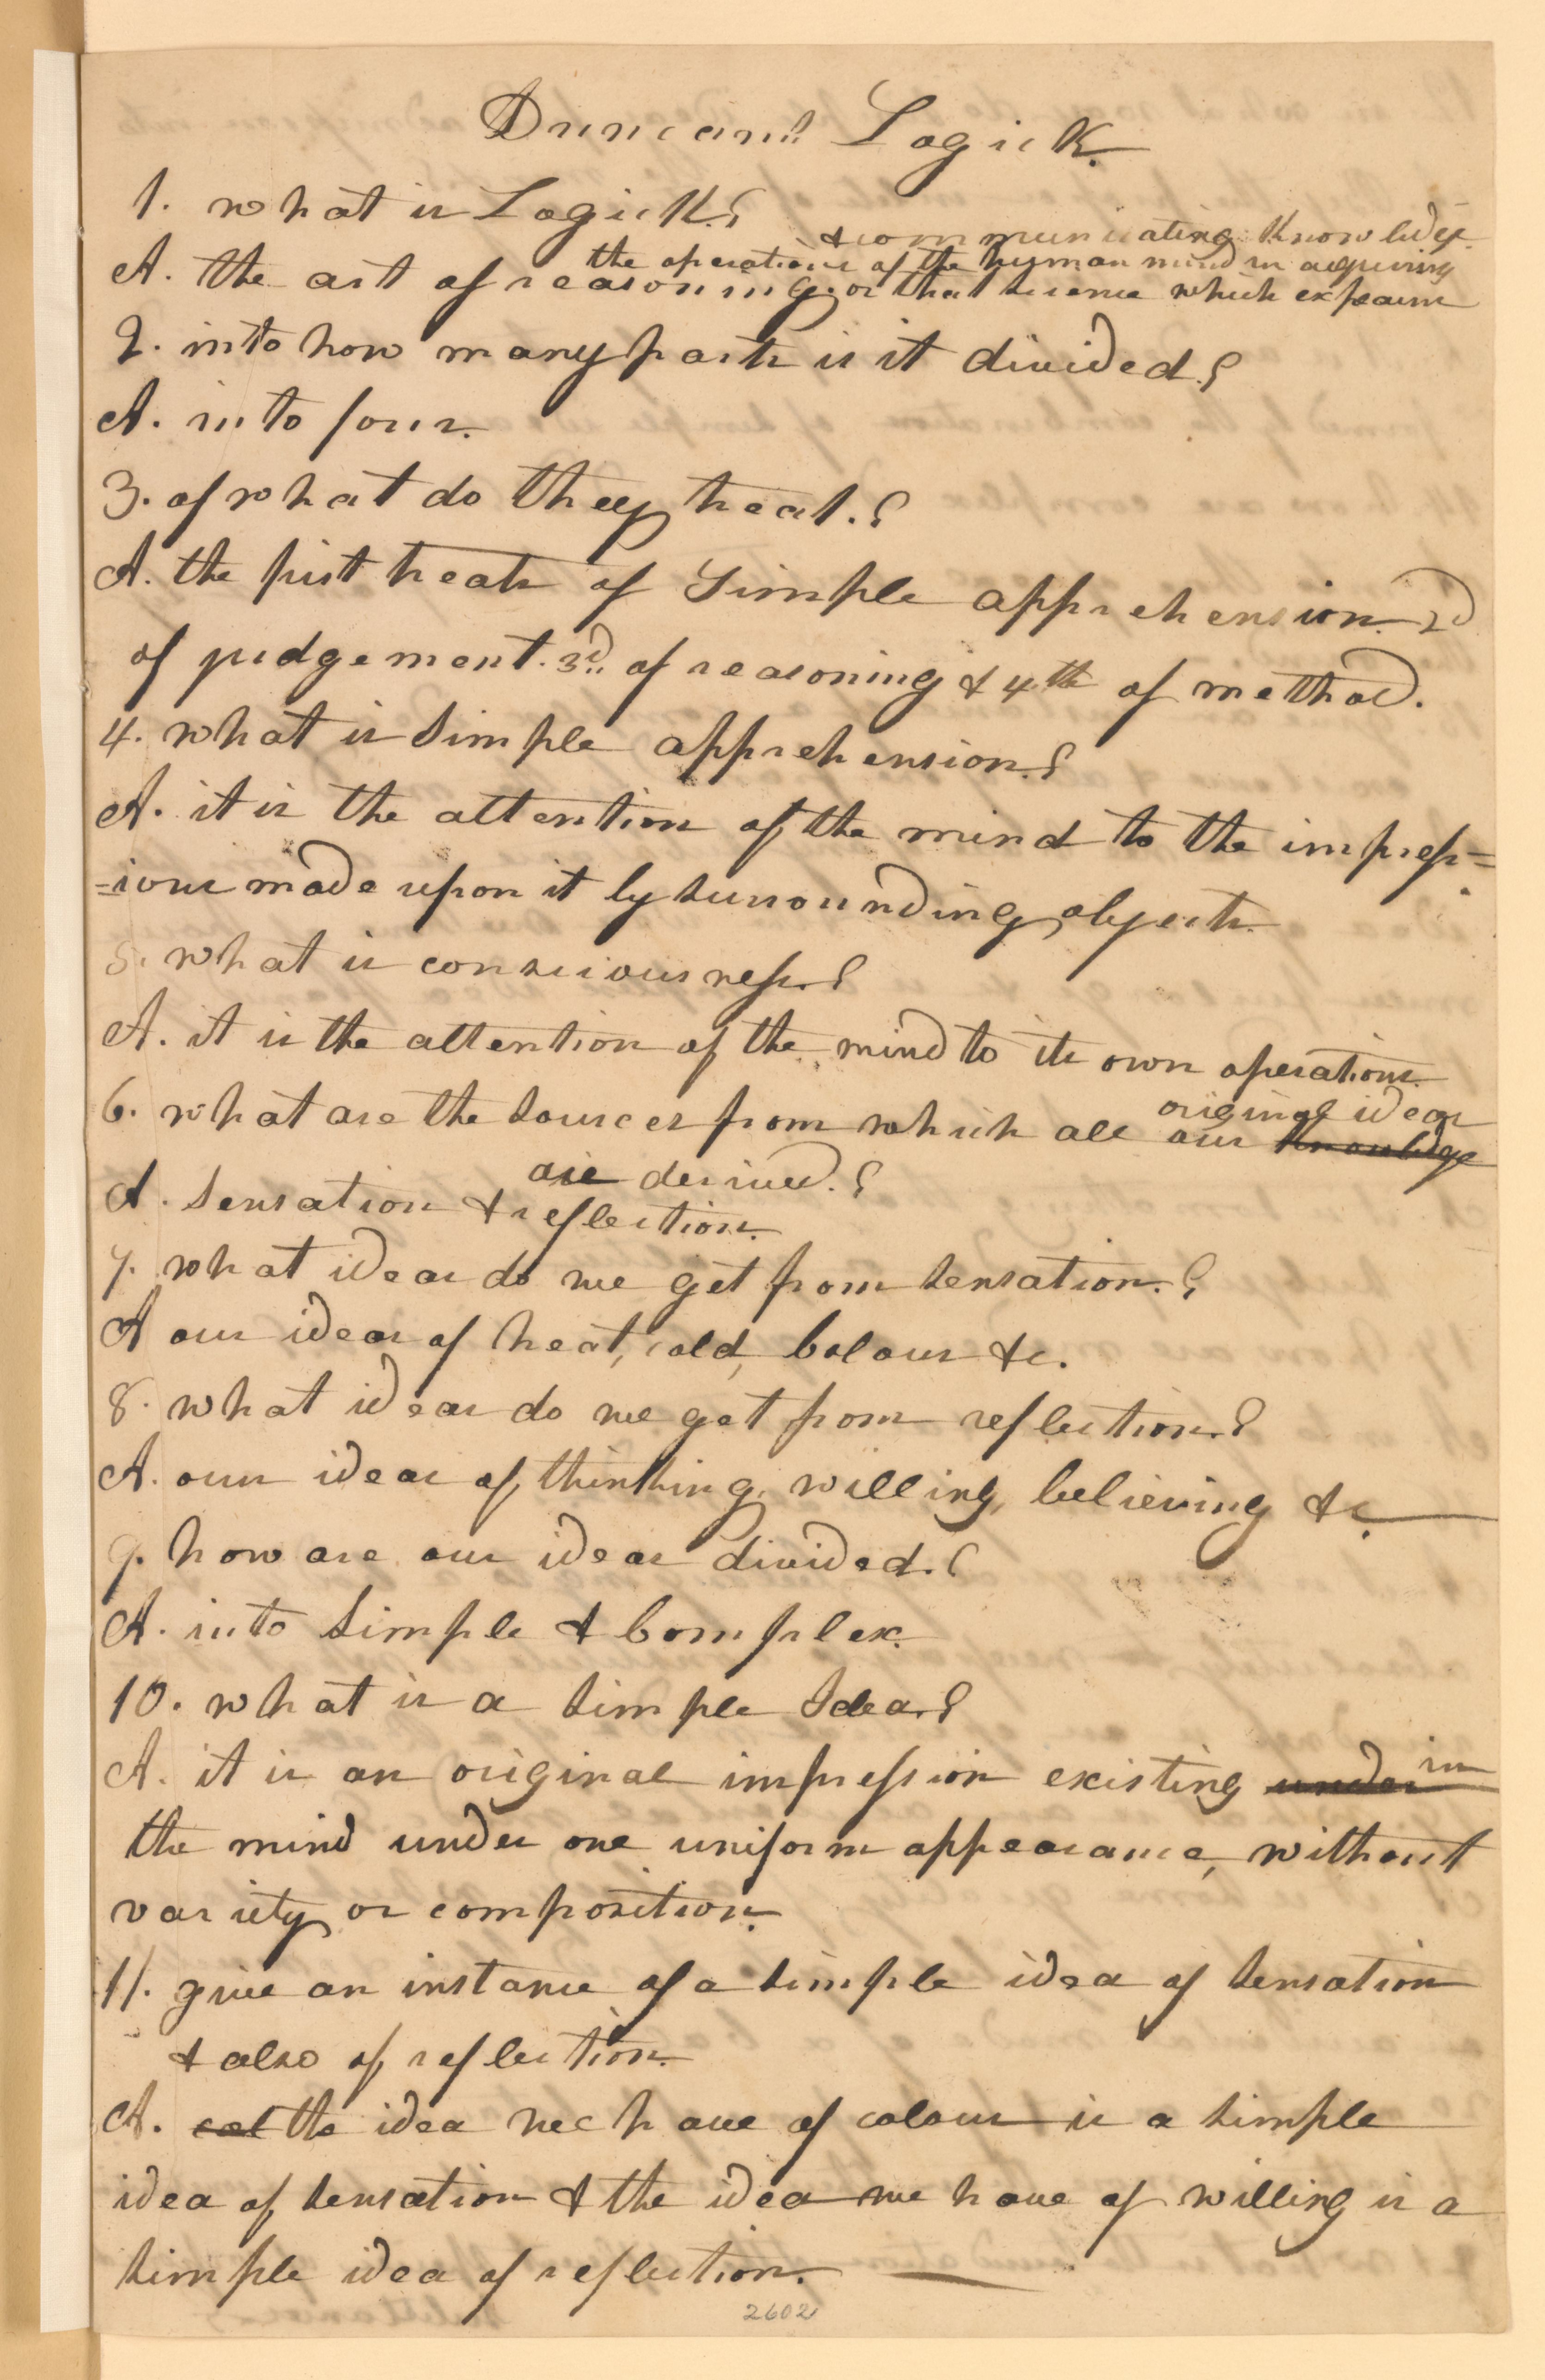 Duncan's Logick.
1. what is Logick?
A. the art of reasoning or that science which explains
the operations of the human mind in acquiring
& communicating knowledge.
2. into how many parts is it divided?
A. into four.
3. of what do they treat.?
A. the first treats of Simple apprehension. 2d
of judgement. 3d. of reasoning & 4th of method.
4. what is simple apprehension.?
A. it is the attention of the mind to the impress=
=ions made upon it by surrounding objects.
5. what is consciousness.?
A. it is the attention of the mind to its own operations.
6. what are the sources from which all our knowledge original ideas
are derived.?
A. sensation & reflection.
7. what ideas do we get from sensation.?
A our ideas of heat, cold, Colour &c.
8. what ideas do we get from reflection.?
A. our ideas of thinking, willing, believing &c.
9. how are our ideas divided.?
A. into simple & Complex.
10. what is a simple Idea.?
A. it is an original impression existing under in
the mind under one uniform appearance, without
variety or composition.
11. give an instance of a simple idea of sensation
& also of reflection.
A. col the idea we have of colour is a simple
idea of sensation & the idea we have of willing is a
simple idea of reflection.
2602